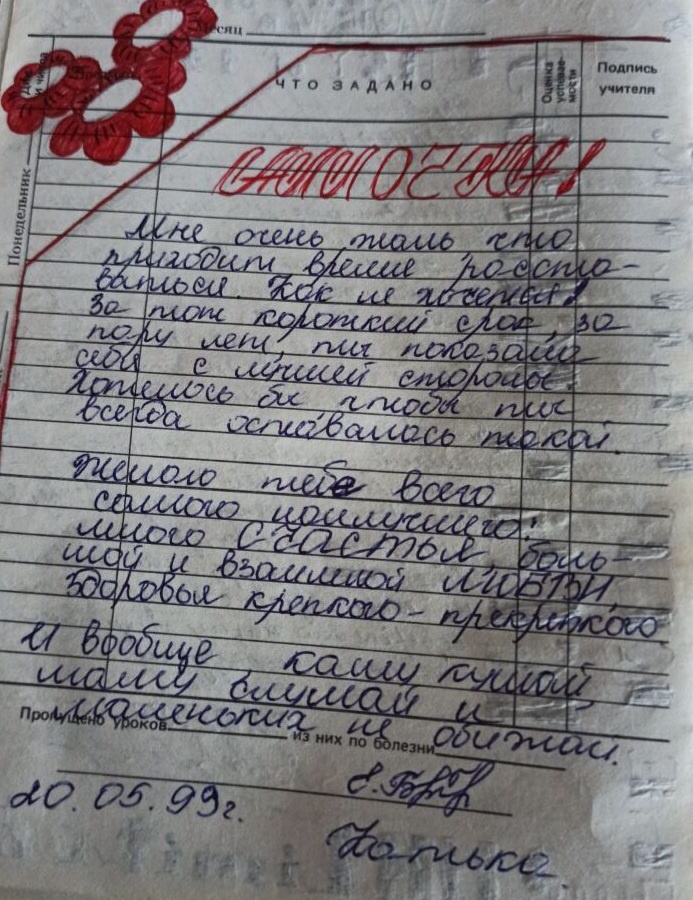 Месяц
Дни и числа
ЧТО ЗАДАНО
Оценка успевае-мости
Подпись учителя
Понедельник
Мне очень жаль что
приходит время расста-
ваться. Как не хочется!
За тот короткий срок, за
пару лет, ты показала
себя с лучшей стороны.
Хотелось бы чтобы ты
всегда оставалась такой.
Желаю тебе всего
самого наилучшего:
много СЧАСТЬЯ, боль-
шой и взаимной ЛЮБВИ,
здоровья крепкого-прекрепкого
И вообще, кашу кушай
маму слушай и
маленьких не обижай.
Пропущено уроков
из них по болезни
20.05.99г.
Катька.